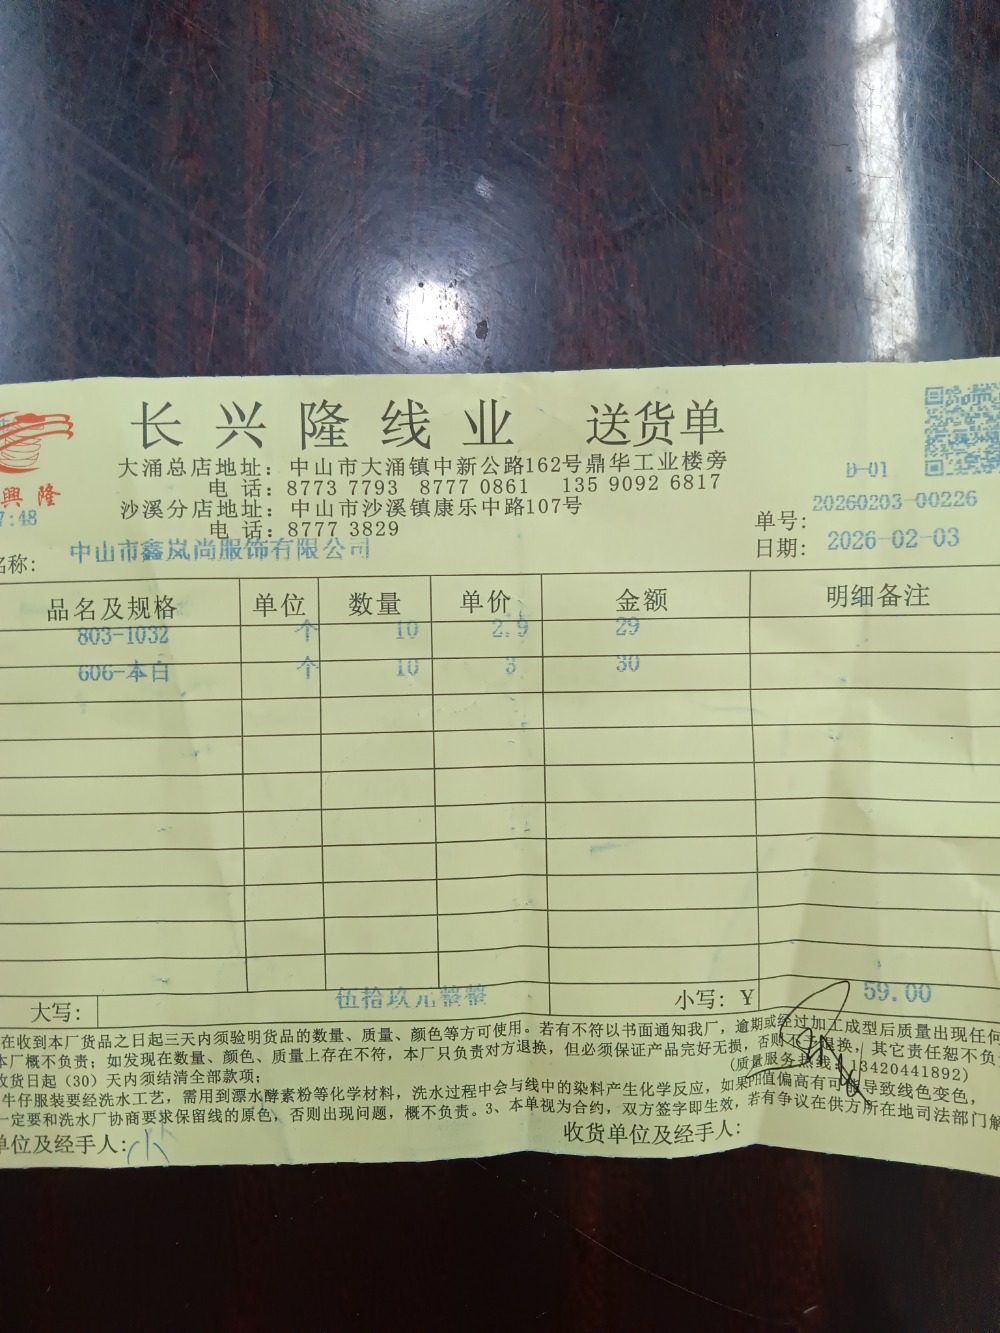 长兴隆线业 送货单
興隆
大涌总店地址：中山市大涌镇中新公路162号鼎华工业楼旁
电 话：8773 7793 8777 0861 135 9092 6817
D-01
沙溪分店地址：中山市沙溪镇康乐中路107号
7:48
单号：20260203-00226
电 话：8777 3829
名称：中山市鑫岚尚服饰有限公司
日期：2026-02-03
品名及规格 单位 数量 单价 金额 明细备注
803-1032 个 10 2.9 29
606-本白 个 10 3 30
大写：伍拾玖元整整 小写：¥ 59.00
在收到本厂货品之日起三天内须验明货品的数量、质量、颜色等方可使用。若有不符以书面通知我厂，逾期或经过加工成型后质量出现任何
本厂概不负责；如发现在数量、颜色、质量上存在不符，本厂只负责对方退换，但必须保证产品完好无损，否则不予退换，其它责任恕不负责
收货日起（30）天内须结清全部款项；
(质量服务热线：13420441892)
牛仔服装要经洗水工艺，需用到漂水酵素粉等化学材料，洗水过程中会与线中的染料产生化学反应，如果PH值偏高有可能导致线色变色，
一定要和洗水厂协商要求保留线的原色，否则出现问题，概不负责。3、本单视为合约，双方签字即生效，若有争议在供方所在地司法部门解
单位及经手人：小 收货单位及经手人：